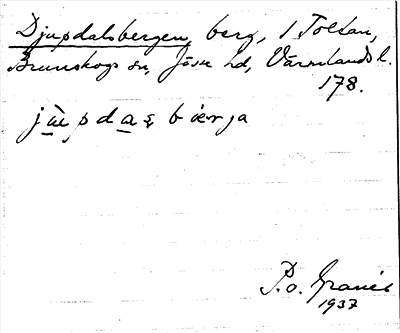 Djupdalsbergen, berg, 1 Toltan,
Brunskogs sn, Jösse hd, Värmlands l.
178.
jùpdas bærja
P. o. Granér
1937